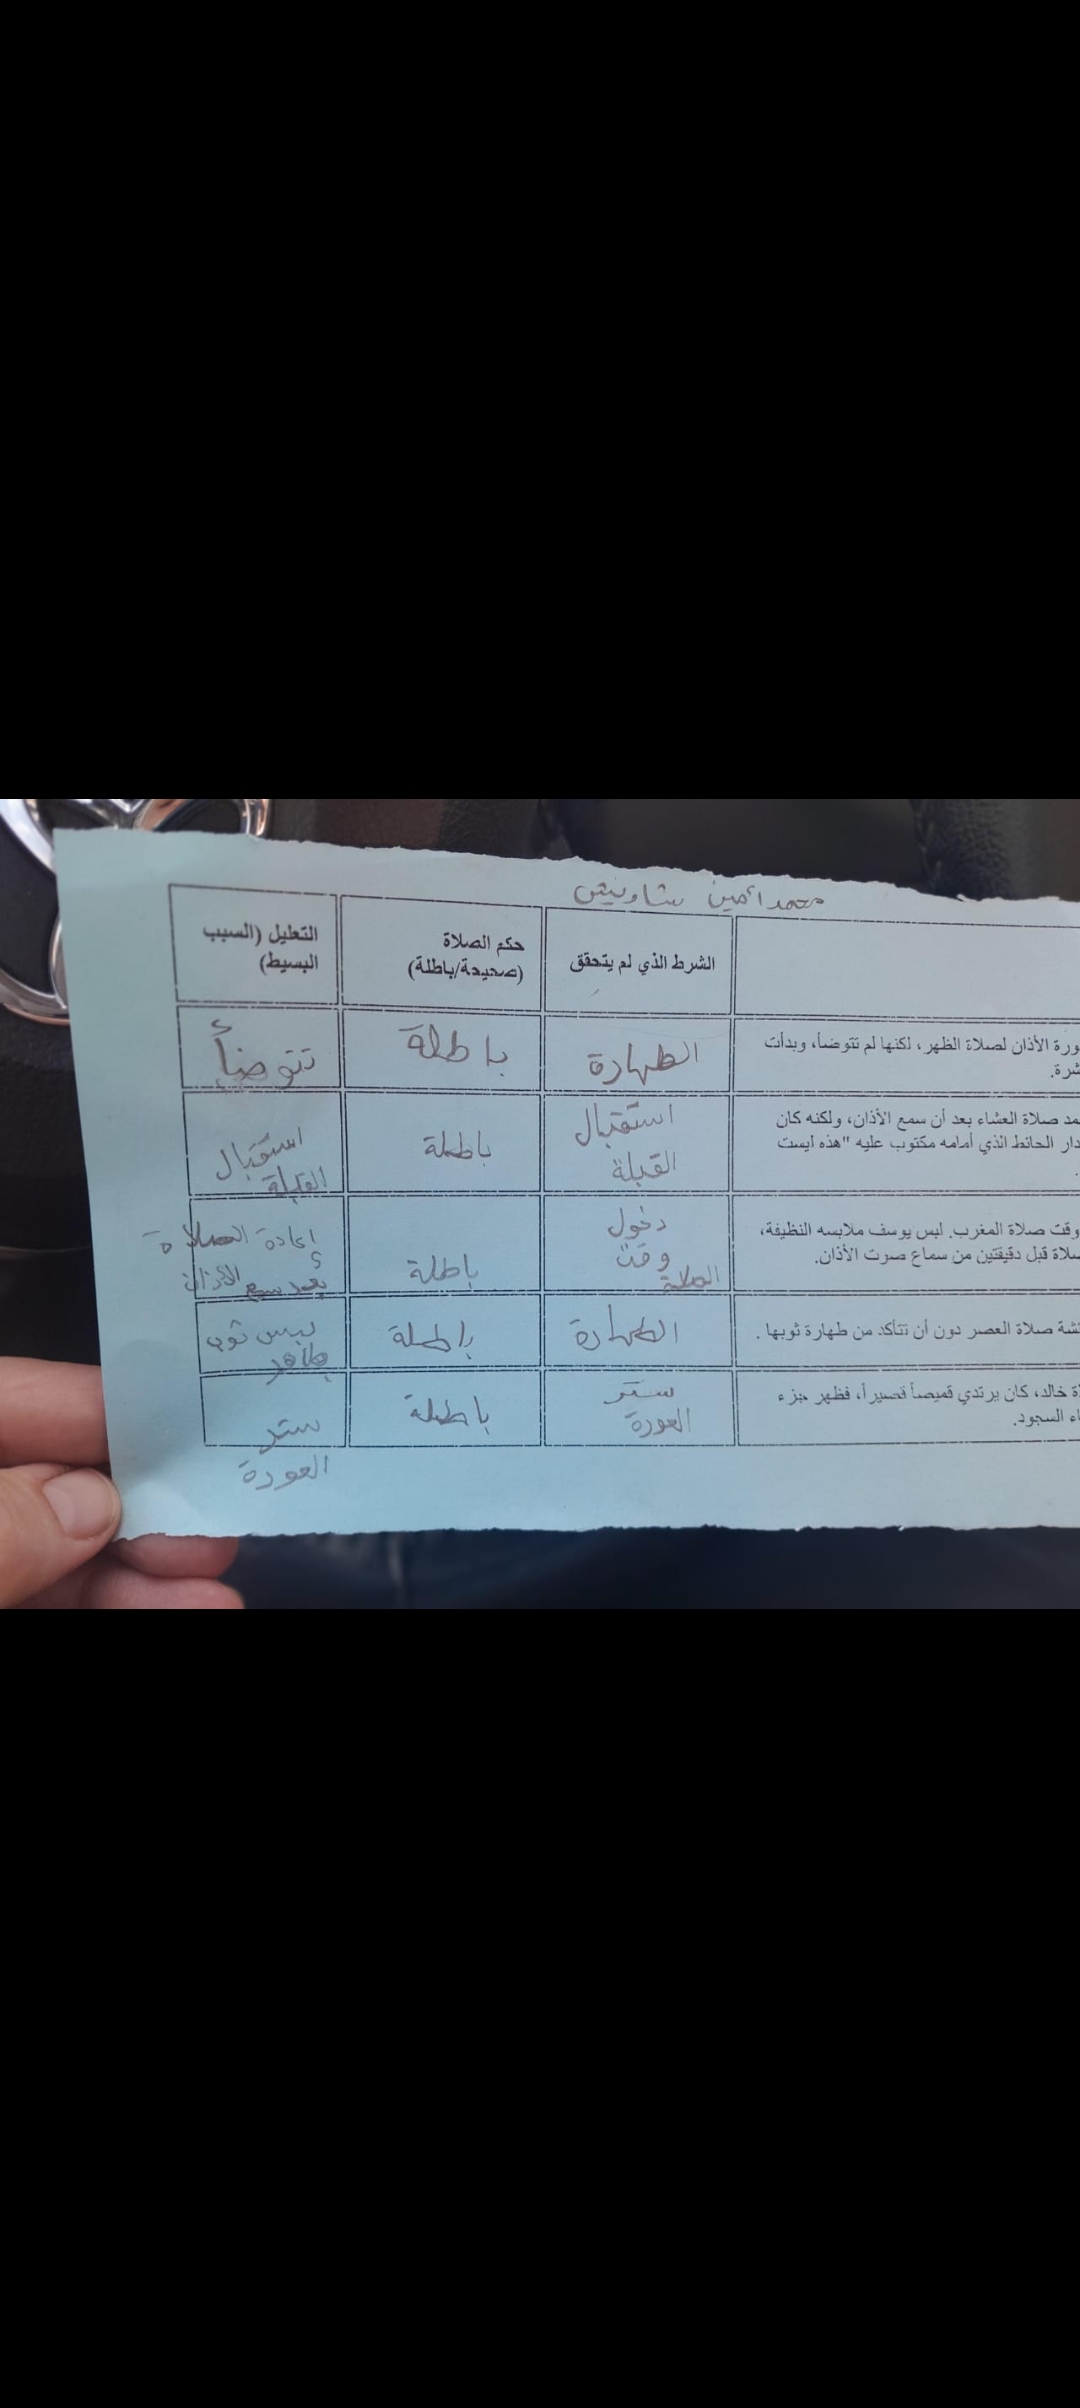 محمد أمين شاويش
الشرط الذي لم يتحقق
حكم الصلاة
(صحيحة/باطلة)
التعليل (السبب
البسيط)
ورة الأذان لصلاة الظهر، لكنها لم تتوضأ، وبدأت
شرة.
الطهارة
باطلة
تتوضأ
مد صلاة العشاء بعد أن سمع الأذان، ولكنه كان
دار الحائط الذي أمامه مكتوب عليه "هذه ليست
استقبال
القبلة
باطلة
استقبال
القبلة
وقت صلاة المغرب. لبس يوسف ملابسه النظيفة،
سلاة قبل دقيقتين من سماع صوت الأذان.
دخول
وقت
الصلاة
باطلة
إعادة الصلاة
بعد سمع الأذان
تشة صلاة العصر دون أن تتأكد من طهارة ثوبها.
الطهارة
باطلة
لبس ثوب
طاهر
ة خالد، كان يرتدي قميصاً قصيراً، فظهر جزء
اء السجود.
ستر
العورة
باطلة
ستر
العورة